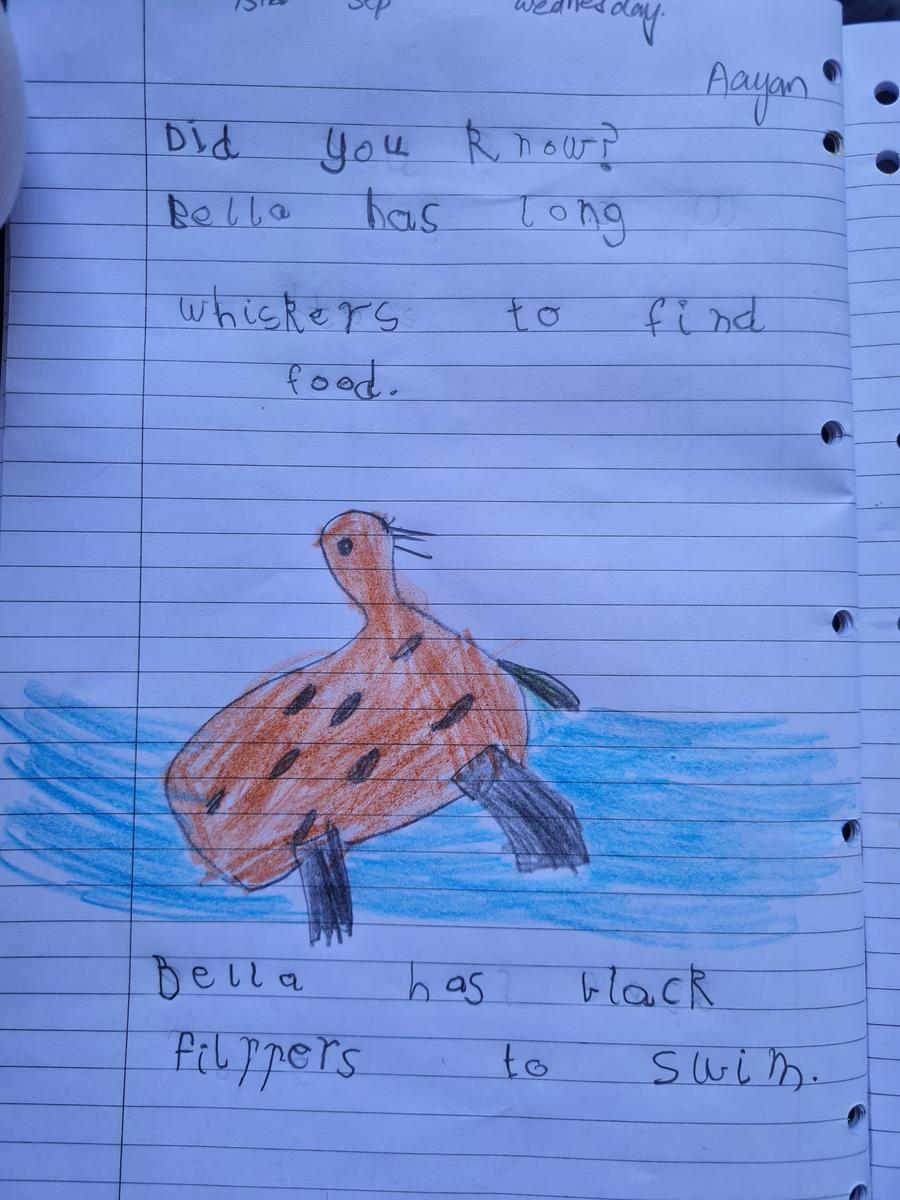 Sep Wednesday.
Aayan
Did you know?
Bella has long
whiskers to find
food.
Bella has black
filppers to swim.